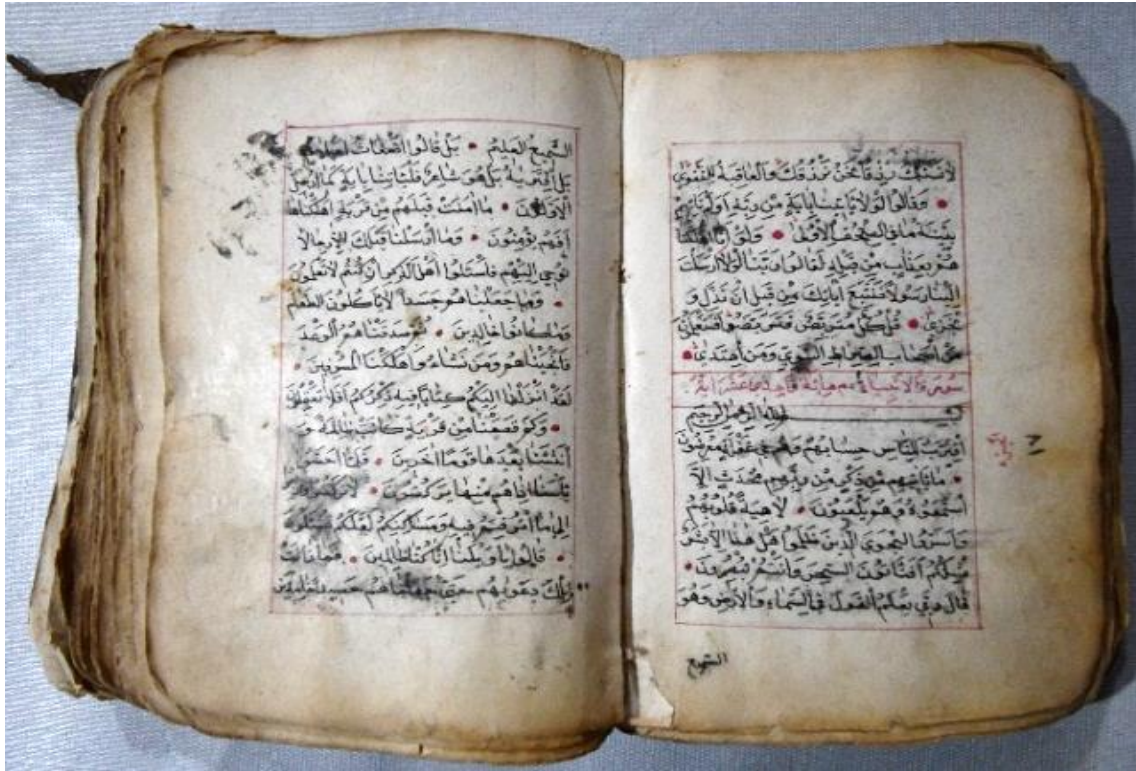 لانسئلك رزقا نحن نرزقك والعاقبة للتقوى
• وقالوا لولا ياتينا باية من ربه اولم تاتهم
بينة ما في الصحف الاولى • ولو انا اهلكنا
هم بعذاب من قبله لقالوا ربنا لولا ارسلت
الينا رسولا فنتبع اياتك من قبل ان نذل و
نخزى • قل كل متربص فتربصوا فستعلمون
من اصحاب الصراط السوي ومن اهتدى •
سورة الانبياء مائة واحدى عشر اية
بسم الله الرحمن الرحيم
اقترب للناس حسابهم وهم في غفلة معرضون
• ما ياتيهم من ذكر من ربهم محدث الا
استمعوه وهم يلعبون • لاهية قلوبهم
واسروا النجوى الذين ظلموا هل هذا الا بشر
مثلكم افتاتون السحر وانتم تبصرون •
قال ربي يعلم القول في السماء والارض وهو
السميع
السميع العليم • بل قالوا اضغاث احلام
بل افتريه بل هو شاعر فلياتنا باية كما ارسل
الاولون • ما امنت قبلهم من قرية اهلكناها
افهم يؤمنون • وما ارسلنا قبلك الا رجالا
نوحي اليهم فاسئلوا اهل الذكر ان كنتم لا تعلمون
• وما جعلناهم جسدا لا ياكلون الطعام
وما كانوا خالدين • ثم صدقناهم الوعد
فانجيناهم ومن نشاء واهلكنا المسرفين •
لقد انزلنا اليكم كتابا فيه ذكركم افلا تعقلون
• وكم قصمنا من قرية كانت ظالمة و
انشأنا بعدها قوما اخرين • فلما احسوا
باسنا اذا هم منها يركضون • لا تركضوا وارجعوا
الى ما اترفتم فيه ومساكنكم لعلكم تسئلون
• قالوا يا ويلنا انا كنا ظالمين • فما زالت
تلك دعويهم حتى جعلناهم حصيدا خامدين